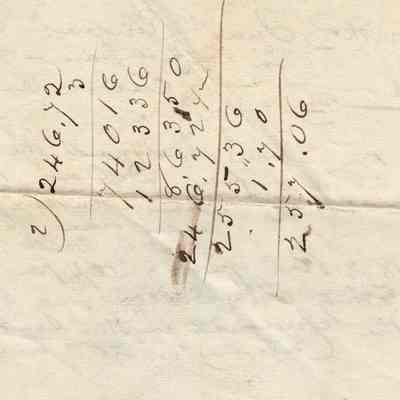 2) 246.72
3
74016
12336
8.6350
246.72
255.36
1.70
257.06